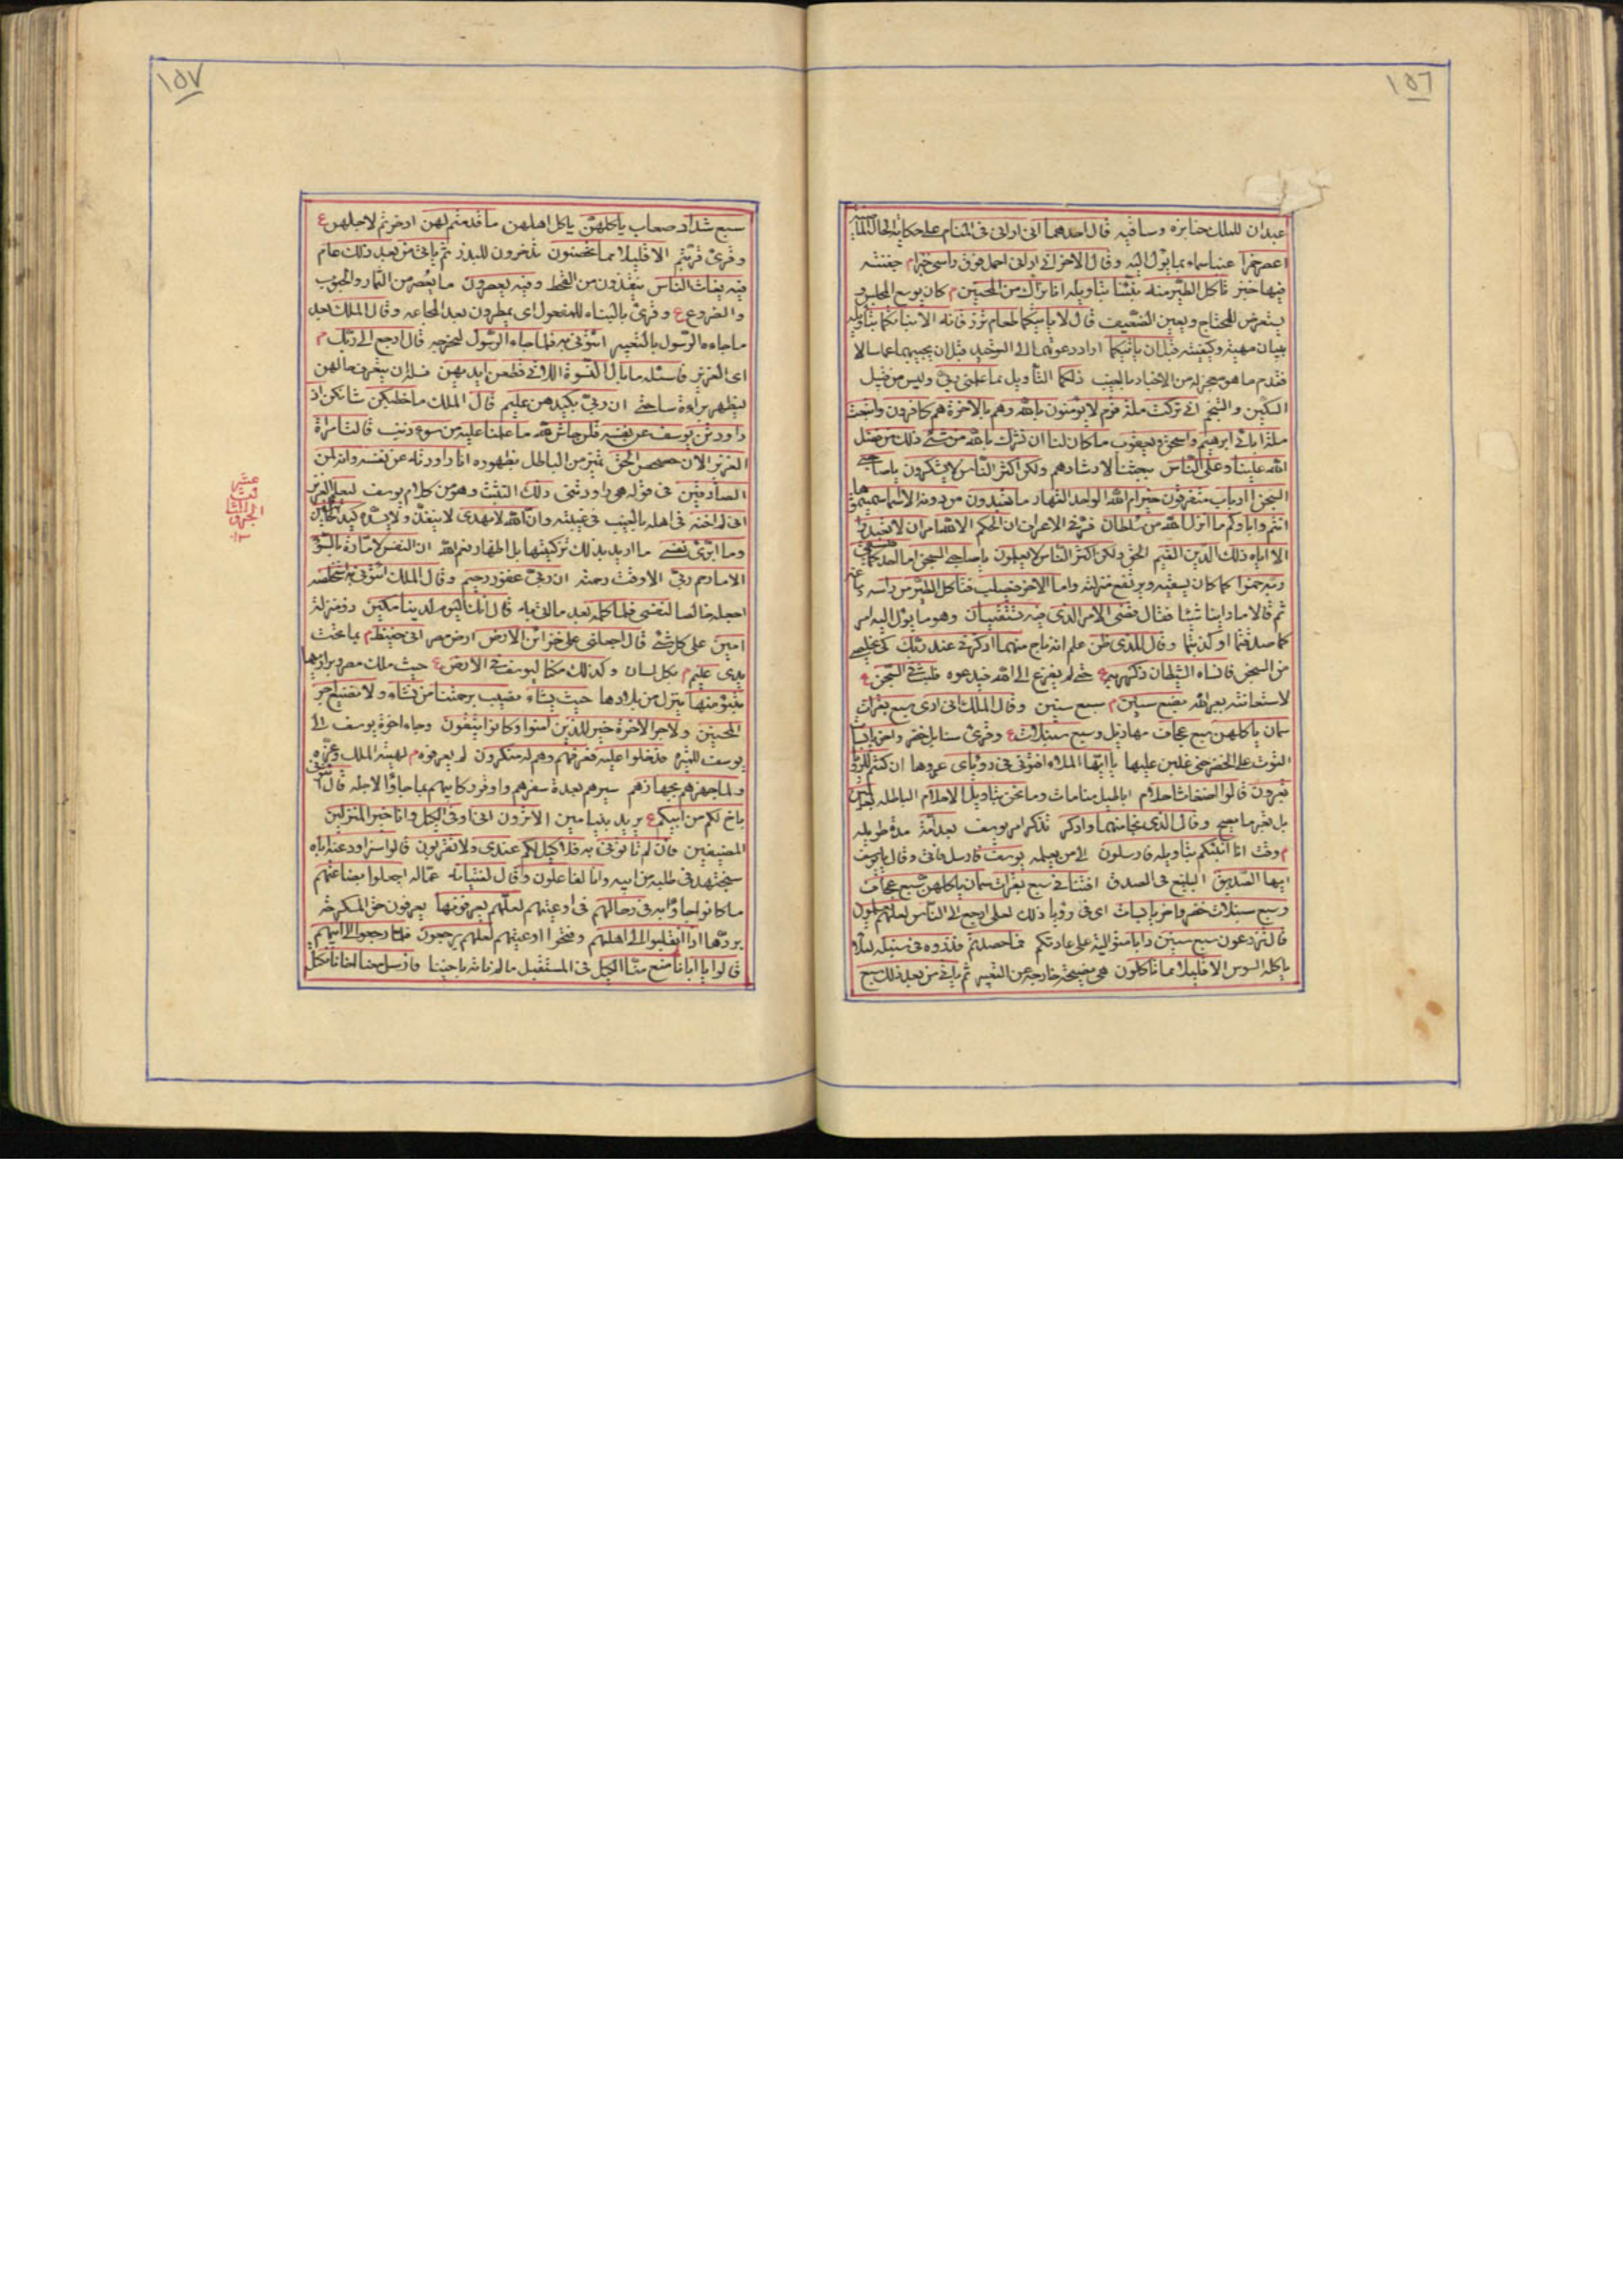 ١٥٦
عبدان للملك خبازه وساقيه قال احدهما انى ارانى فى المنام على حكاية الحال الماضية
اعصر خمرا عنبا سماه بما يؤل اليه وقال الاخر انى ارانى احمل فوق راسى خبزا م جفنته
فيها خبز تاكل الطير منه نبئنا بتاويله انا نراك من المحسنين م كان يوسع المجلس و
يتعرض للمحتاج ويعين الضعيف قال لا ياتيكما طعام ترزقانه الا نباتكما بتاويله
ببيان مهيته وكيفيته قبل ان ياتيكما اراد دعوتهما الى التوحيد قبل ان يجيبهما عما سالا
فقدم ما هو معجز له من الاخبار بالغيب ذلكما التأويل مما علمنى ربى وليس من قبيل
التكهن والتنجم انى تركت ملة قوم لا يؤمنون بالله وهم بالاخرة هم كافرون واتبعت
ملة ابائى ابرهيم واسحق ويعقوب ما كان لنا ان نشرك بالله من شئ ذلك من فضل
الله علينا وعلى الناس ببعثنا لارشادهم ولكن اكثر الناس لا يشكرون يا صاحبى
السجن ءارباب متفرقون خير ام الله الواحد القهار ما تعبدون من دونه الا اسماء سميتموها
انتم واباؤكم ما انزل الله بها من سلطان ان الحكم الا لله امر ان لا تعبدوا
الا اياه ذلك الدين القيم الحق ولكن اكثر الناس لا يعلمون يا صاحبى السجن اما احدكما فيسقى
ربه خمرا كما كان يسقيه ويرتفع منزلته واما الاخر فيصلب فتاكل الطير من راسه
ثم قالا ما راينا شيئا فقال قضى الامر الذى فيه تستفتيان وهو ما يؤل اليه امر
كما صدقتما او كذبتما وقال للذى ظن علم انه ناج منهما اذكرنى عند ربك كى يخلصنى
من السجن فانساه الشيطان ذكر ربه ع حتى لم يفزع الى الله فيدعوه فلبث فى السجن ع
لاستعانته بغير الله بضع سنين م سبع سنين وقال الملك انى ارى سبع بقرات
سمان ياكلهن سبع عجاف مهازيل وسبع سنبلات ع وقرئ سنابل خضر واخر يابسات
التوت على الخضر حتى غلبن عليها يا ايها الملاء افتونى فى رؤياى عبروها ان كنتم للرؤيا
تعبرون قالوا اضغاث احلام اباطيل منامات وما نحن بتاويل الاحلام الباطله بعالمين
وقال الذى نجا منهما وادكر تذكر امر يوسف بعد امة مدة طويله
م وقت انا انبئكم بتاويله فارسلون الى من يعلمه يوسف فارسل فاتى وقال يا يوسف
ايها الصديق البليغ فى الصدق افتنا فى سبع بقرات سمان ياكلهن سبع عجاف
وسبع سنبلات خضر واخر يابسات اى فى رؤيا ذلك لعلى ارجع الى الناس لعلهم يعلمون
قال تزرعون سبع سنين دابا متوالية على عادتكم فما حصدتم فذروه فى سنبله لئلا
ياكله السوس الا قليلا مما تاكلون هى نصيحة خارجة عن التعبير ثم ياتى من بعد ذلك سبع
١٥٧
سبع شداد صعاب ياكلهن ياكل اهلهن ما قدمتم لهن ادخرتم لاجلهن ع
وقرئ قربتم الا قليلا مما تحصنون تدخرون للبذر ثم ياتى من بعد ذلك عام
فيه يغاث الناس ينقذون من القحط وفيه يعصرون ما يعصر من الثمار والحبوب
والضروع ع وقرئ بالبناء للمفعول اى يمطرون بعد المجاعه وقال الملك بعد
ما جاءه الرسول بالتعبير ائتونى به فلما جاءه الرسول ليخرجه قال ارجع الى ربك م
اى العزيز فاسئله ما بال النسوة اللاتى قطعن ايديهن سله ان يتعرف حالهن
ليظهر براءة ساحتى ان ربى بكيدهن عليم قال الملك ما خطبكن شانكن اذ
راودتن يوسف عن نفسه قلن حاش لله ما علمنا عليه من سوء ذنب قالت امراة
العزيز الان حصحص الحق تميز من الباطل بظهوره انا راودته عن نفسه وانه لمن
الصادقين فى قوله هى راودتنى ذلك التثبت وهو من كلام يوسف ليعلم العزيز
انى لم اخنه فى اهله بالغيب فى غيبته وان الله لا يهدى لا ينفذ ولا يسدد كيد الخائنين
وما ابرئ نفسى ما اريد بذلك تزكيتها بل اظهار نعم الله ان النفس لامارة بالسوء
الا ما رحم ربى الا وقت رحمته ان ربى غفور رحيم وقال الملك ائتونى به استخلصه
اجعله خالصا لنفسى فلما كلمه بعد ما اتى به قال انك اليوم لدينا مكين ذو منزلة
امين على كل شئ قال اجعلنى على خزائن الارض ارض مصر انى حفيظ م بما تحت
يدى عليم م بكل لسان وكذلك مكنا ليوسف فى الارض ع حيث ملك مصر وبراريها
يتبوء منها ينزل من بلادها حيث يشاء نصيب برحمتنا من نشاء ولا نضيع اجر
المحسنين ولاجر الاخرة خير للذين امنوا وكانوا يتقون وجاء اخوة يوسف الى
يوسف للميره فدخلوا عليه فعرفهم وهم له منكرون لم يعرفوه م لهيبة الملك وعزه
ولما جهزهم بجهازهم سيرهم بعدة سفرهم واوقر ركائبهم بما جاؤا لاجله قال ائتونى
باخ لكم من ابيكم ع يريد بنيامين الا ترون انى اوفى الكيل وانا خير المنزلين
المضيفين فان لم تاتونى به فلا كيل لكم عندى ولا تقربون قالوا سنراود عنه اباه
سنجتهد فى طلبه من ابيه وانا لفاعلون وقال لفتيانه عماله اجعلوا بضاعتهم
ما كانوا جاؤا به فى رحالهم فى اوعيتهم لعلهم يعرفونها يعرفون حق التكرمة
بردها اذا انقلبوا الى اهلهم وفتحوا اوعيتهم لعلهم يرجعون فلما رجعوا الى ابيهم
قالوا يا ابانا منع منا الكيل فى المستقبل ما لم ناته باخينا فارسل معنا اخانا نكتل